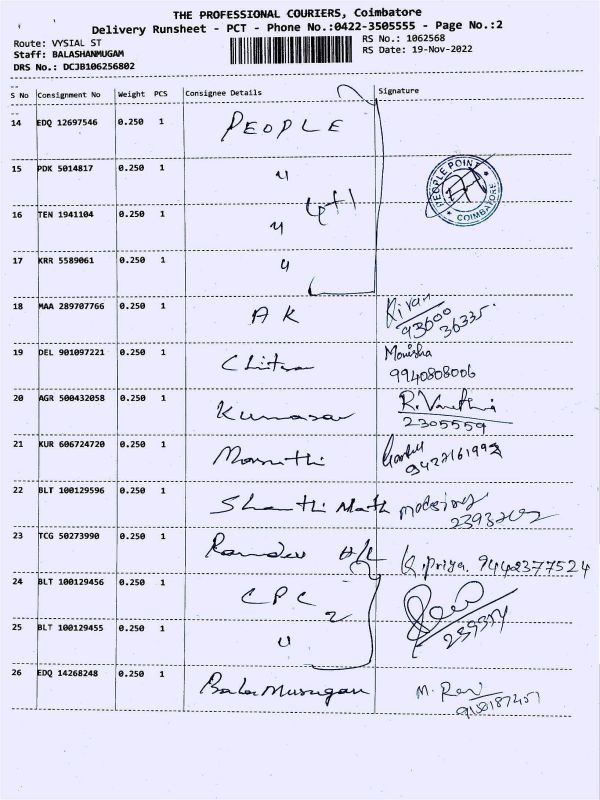 THE PROFESSIONAL COURIERS, Coimbatore
Delivery Runsheet - PCT - Phone No.:0422-3505555 - Page No.:2
Route: VYSIAL ST
RS No.: 1062568
Staff: BALASHANMUGAM
RS Date: 19-Nov-2022
DRS No.: DCJB106256802
S No Consignment No Weight PCS Consignee Details Signature
14 EDQ 12697546 0.250 1 PEOPLE
15 PDK 5014817 0.250 1 "
PEOPLE POINT
COIMBATORE
16 TEN 1941104 0.250 1 "
17 KRR 5589061 0.250 1 "
18 MAA 289707766 0.250 1 AK Kiran
93600
36335
19 DEL 901097221 0.250 1 Chitra Monisha
9940808006
20 AGR 500432058 0.250 1 Kumasar R.
2305559
21 KUR 606724720 0.250 1 Maruthi
22 BLT 100129596 0.250 1 Shanthi Math
23 TCG 50273990 0.250 1 Ramdev K. Priya. 9442377524
24 BLT 100129456 0.250 1 CPC 2
25 BLT 100129455 0.250 1 "
26 EDQ 14268248 0.250 1 BalaMurugan M. Ravi
9150187451